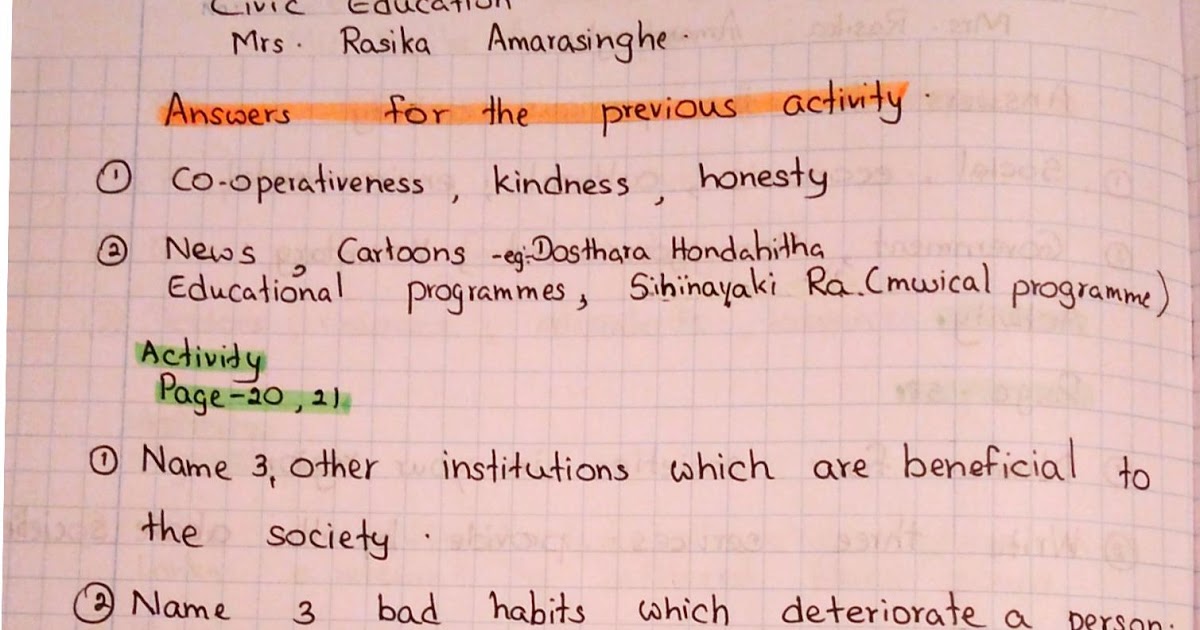 Civic Education
Mrs. Rasika Amarasinghe.
Answers for the previous activity.
① Co-operativeness, kindness, honesty
② News, Cartoons -eg:- Dosthara Hondahitha
Educational programmes, Sihinayaki Ra. (musical programme)
Activity
Page-20, 21.
① Name 3, other institutions which are beneficial to
the society.
② Name 3 bad habits which deteriorate a person.